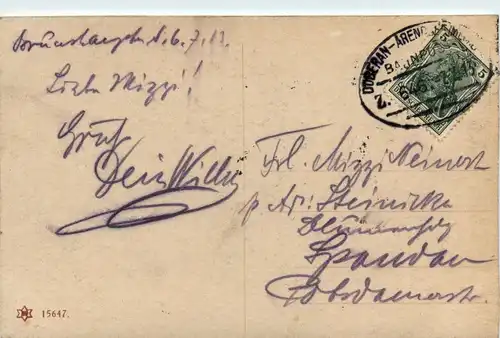 Brunshaupten d. 6.7.13.
Liebe Mizzi!
Gruß
Dein Willy
Frl. Mizzi Reinert
p. Adr. Steinicke
Spandau
Potsdamerstr.
DOBERAN-ARENDS
BAHNPOST
15647.